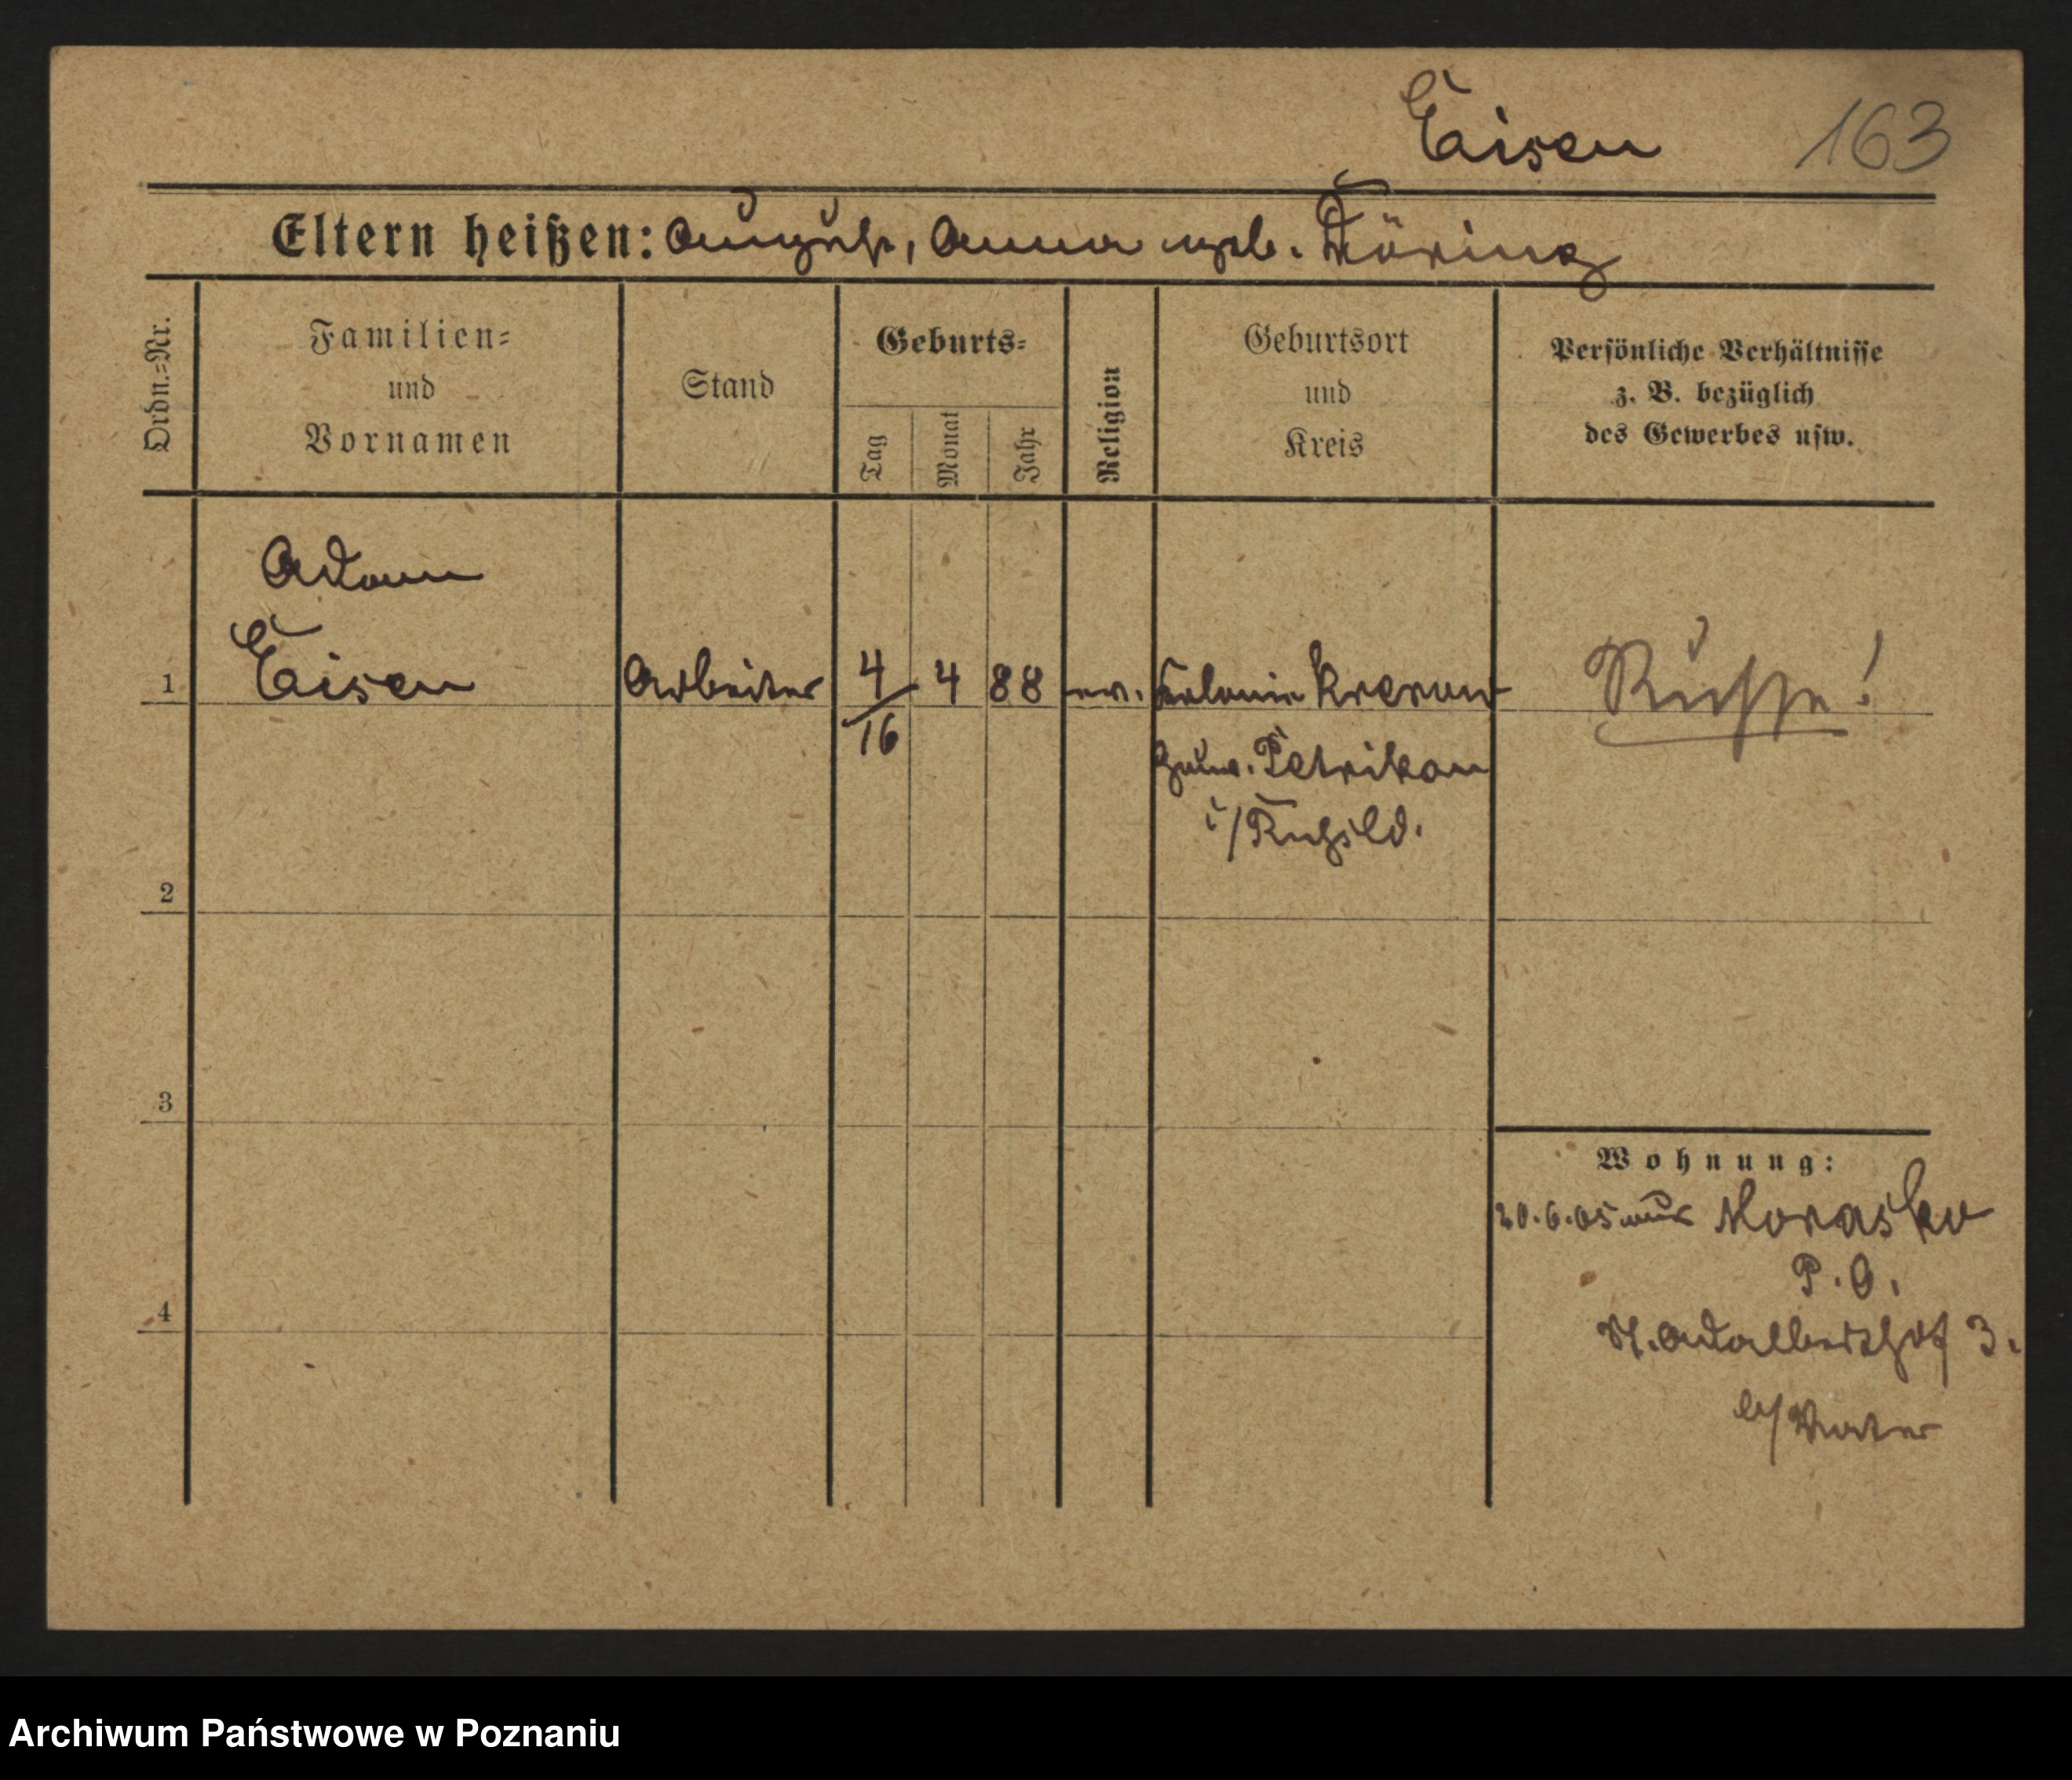 Eisen 163
Eltern heißen: August, Anna geb. Döring
Ordn.=Nr.
Familien=
und
Vornamen
Stand
Geburts=
Tag
Monat
Jahr
Religion
Geburtsort
und
Kreis
Persönliche Verhältnisse
z. B. bezüglich
des Gewerbes usw.
Adam
1 Eisen Arbeiter 4/16 4 88 ev. Kolonie Russe!
Gouv. Petrikau
i/Rußld.
2
3
4
Wohnung:
20.6.05 aus Morasko
P. O.
N. Adalberthof 3.
b/Vater
Archiwum Państwowe w Poznaniu